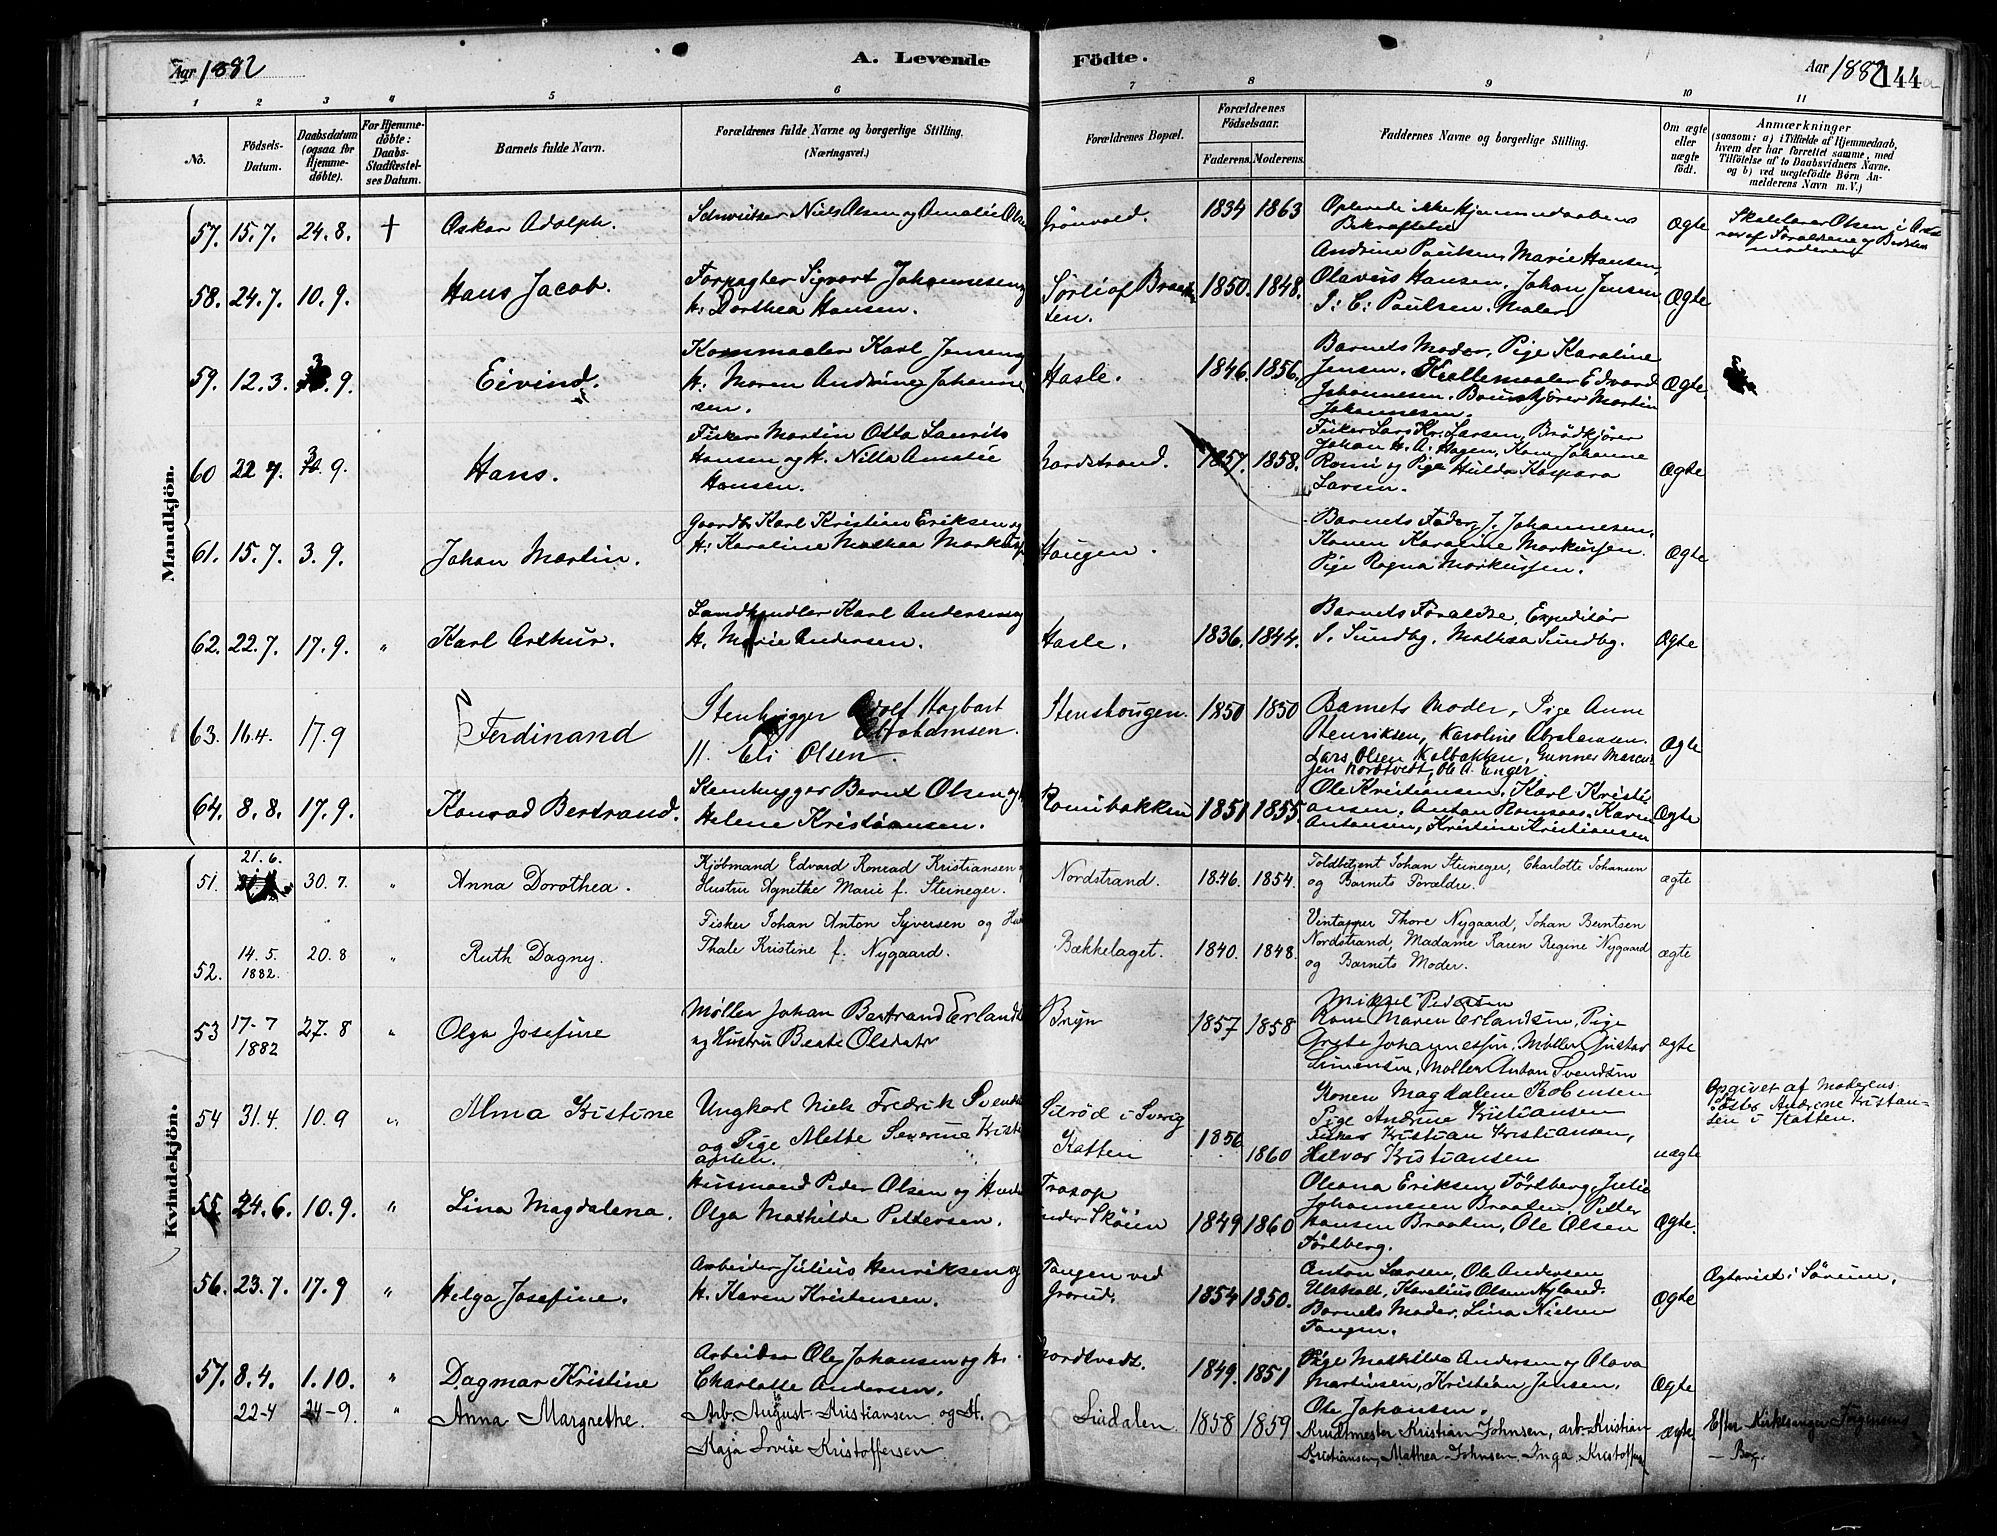 Aar 1882
A. Levende Födte.
Aar 1882
144a
1 2 3 4 5 6 7 8 9 10 11
No.
Födsels-Datum.
Daabsdatum (ogsaa for Hjemme-døbte).
For Hjemme-døbte: Daabs-Stadfæstel-ses Datum.
Barnets fulde Navn.
Forældrenes fulde Navne og borgerlige Stilling.
(Næringsvei.)
Forældrenes Bopæl.
Forældrenes Födselsaar.
Faderens. Moderens.
Faddernes Navne og borgerlige Stilling.
Om ægte eller uægte födt.
Anmærkninger
(saasom: a) i Tilfælde af Hjemmedaab,
hvem der har forrettet samme, med
Tilföielse af to Daabsvidners Navne.
og b) ved uægtefödte Börn An-
melderens Navn m. V.)
Mandkjön.
57. 15.7. 24.8. + Oskar Adolph. Niels Olsen og Amalie Olse Grönvold. 1834 1863 Oplevede ikke Hjemmedaabens Bekræftelse Ægte Skolelærer Olsen i
af Forældrene og Bedste moderen
58. 24.7. 10.9. Hans Jacob. Forpagter Sigvart Johannesen og
H. Dorthea Hansen. Sörli af Braa ten. 1850. 1848. Andrine Paulsen, Marie Hansen,
Olavus Hansen, Johan Jensen
S. C. Paulsen. Maler Ægte
59. 12.3. 3.9. Eivind. Kornmaaler Karl Jensen og
H. Maren Andrine Johanne
sen. Hasle. 1846. 1856. Barnets Moder, Pige Karoline
Jensen. Kullemaaler Edvard
Johannesen. Martin
Johannesen. Ægte
60 22 7. 3.9. Hans. Fisker Martin Otto Laurits
Hansen og H. Nilla Amalie
Hansen. Nordstrand. 1857. 1858. Fisker Lars Kr. Larsen, Brödkjörer
Johan H. A. Hagen, Kom Johanne
Romi og Pige Hulda Kaspara
Larsen. Ægte
61. 15.7. 3.9. Johan Martin. Gaardb. Karl Kristian Eriksen og
H. Karoline Mathea Markus Haugen. Barnets Fader, J. Johannesen,
Konen Karoline Markussen.
Pige Ragna Markussen. Ægte
62. 22.7. 17.9. " Karl Arthur. Landhandler Karl Andersen og
H. Marie Andersen. Hasle. 1836. 1844. Barnets Forældre, Expeditör
S. Sundby, Mathea Sundby. Ægte
63. 16.4. 17.9 Ferdinand Stenhugger Adolf Hagbart
Abrahamsen.
H. Eli Olsen Stenshougen. 1850 1850 Barnets Moder, Pige Anne
Henriksen, Karoline Abrahamsen.
Lars Olsen Kalbakken, Gunner Marcu-
sen Nordtvedt, Ole A. Unger Ægte
64. 8.8. 17.9. Konrad Bertrand. Stenhugger Bernt Olsen og
Helene Kristiansen. Romibakken 1851 1855. Ole Kristiansen, Karl Kristi
ansen, Anton Romsaas, Karen
Antonsen, Kristine Kristiansen Ægte
Kvindekjön.
51. 21.6. 30.7. " Anna Dorothea. Kjöbmand Edvard Konrad Kristiansen
Hustru Agnethe Marie f. Steineger. Nordstrand. 1846. 1854. Toldbetjent Johan Steineger, Charlotte Johansen
og Barnets Forældre. ægte
52. 14.5. 1882. 20.8 " Ruth Dagny. Fisker Johan Anton Syversen og Hus
Thale Kristine f. Nygaard. Bækkelaget. 1840. 1848. Vintapper Thore Nygaard, Johan Berntsen
Nordstrand, Madame Karen Regine Nygaard
og Barnets Moder. ægte
53 17-7 1882 27.8 " Olga Josefine Møller Johan Bertrand Erlands
og Hustru Beate Olsdatr Bryn 1857 1858 Mikael Pedersen
Kone Maren Erlandsen, Pige
Grete Johannessen, Møller Gustav
Simensen, Møller Anton Svendsen ægte
54 31.4. 10.9 " Alma Kristine Ungkarl Niels Fredrik Svends
og Pige Mette Severine Kristi
ansen. Silröd i Sverig
Katten 1856 1860 Konen Magdalene Robinsen
Pige Andrine Kristiansen
Fisker Kristian Kristiansen,
Halvor Kristiansen uægte Opgivet af Moderens
Söster Andrene Kristian-
sen i Katten.
55. 24.6. 10.9. " Lina Magdalena. Husmand Peder Olsen og Hustr
Olga Mathilde Pettersen. Trasop
under Sköien 1849 1860 Oleana Eriksen Törtberg, Julie
Johannesen Braaten, Petter
Hansen Braaten, Ole Olsen
Törtberg. Ægte.
56. 23.7. 17.9 " Helga Josefine. Arbeider Julius Henriksen og
H. Karen Kristensen. Tangen ved
Grorud. 1854 1850. Anton Larsen, Ole Andersen
Ulsholt, Karelius Olsen Nyland.
Barnets Moder, Lina Nielsen
Tangen. Ægte Ægteviet i Sörum.
57. 8.4. 1.10. " Dagmar Kristine Arbeider Ole Johansen og H.
Charlotte Andersen. Nordtvedt. 1849. 1851 Pige Mathilde Andersen og Olava
Martinsen, Kristian Jensen.
Ole Johansen. Ægte
22-4 24-9. " Anna Margrethe. Arb. August Kristiansen og H.
Kaja Lovise Kristoffersen Lindalen 1858 1859 Krudtmester Kristian Johnsen, arb. Kristian
Kristiansen, Mathea Johnsen Inga Kristoffersen ægte Efter Kirkesanger Jörgensens
— Bog.